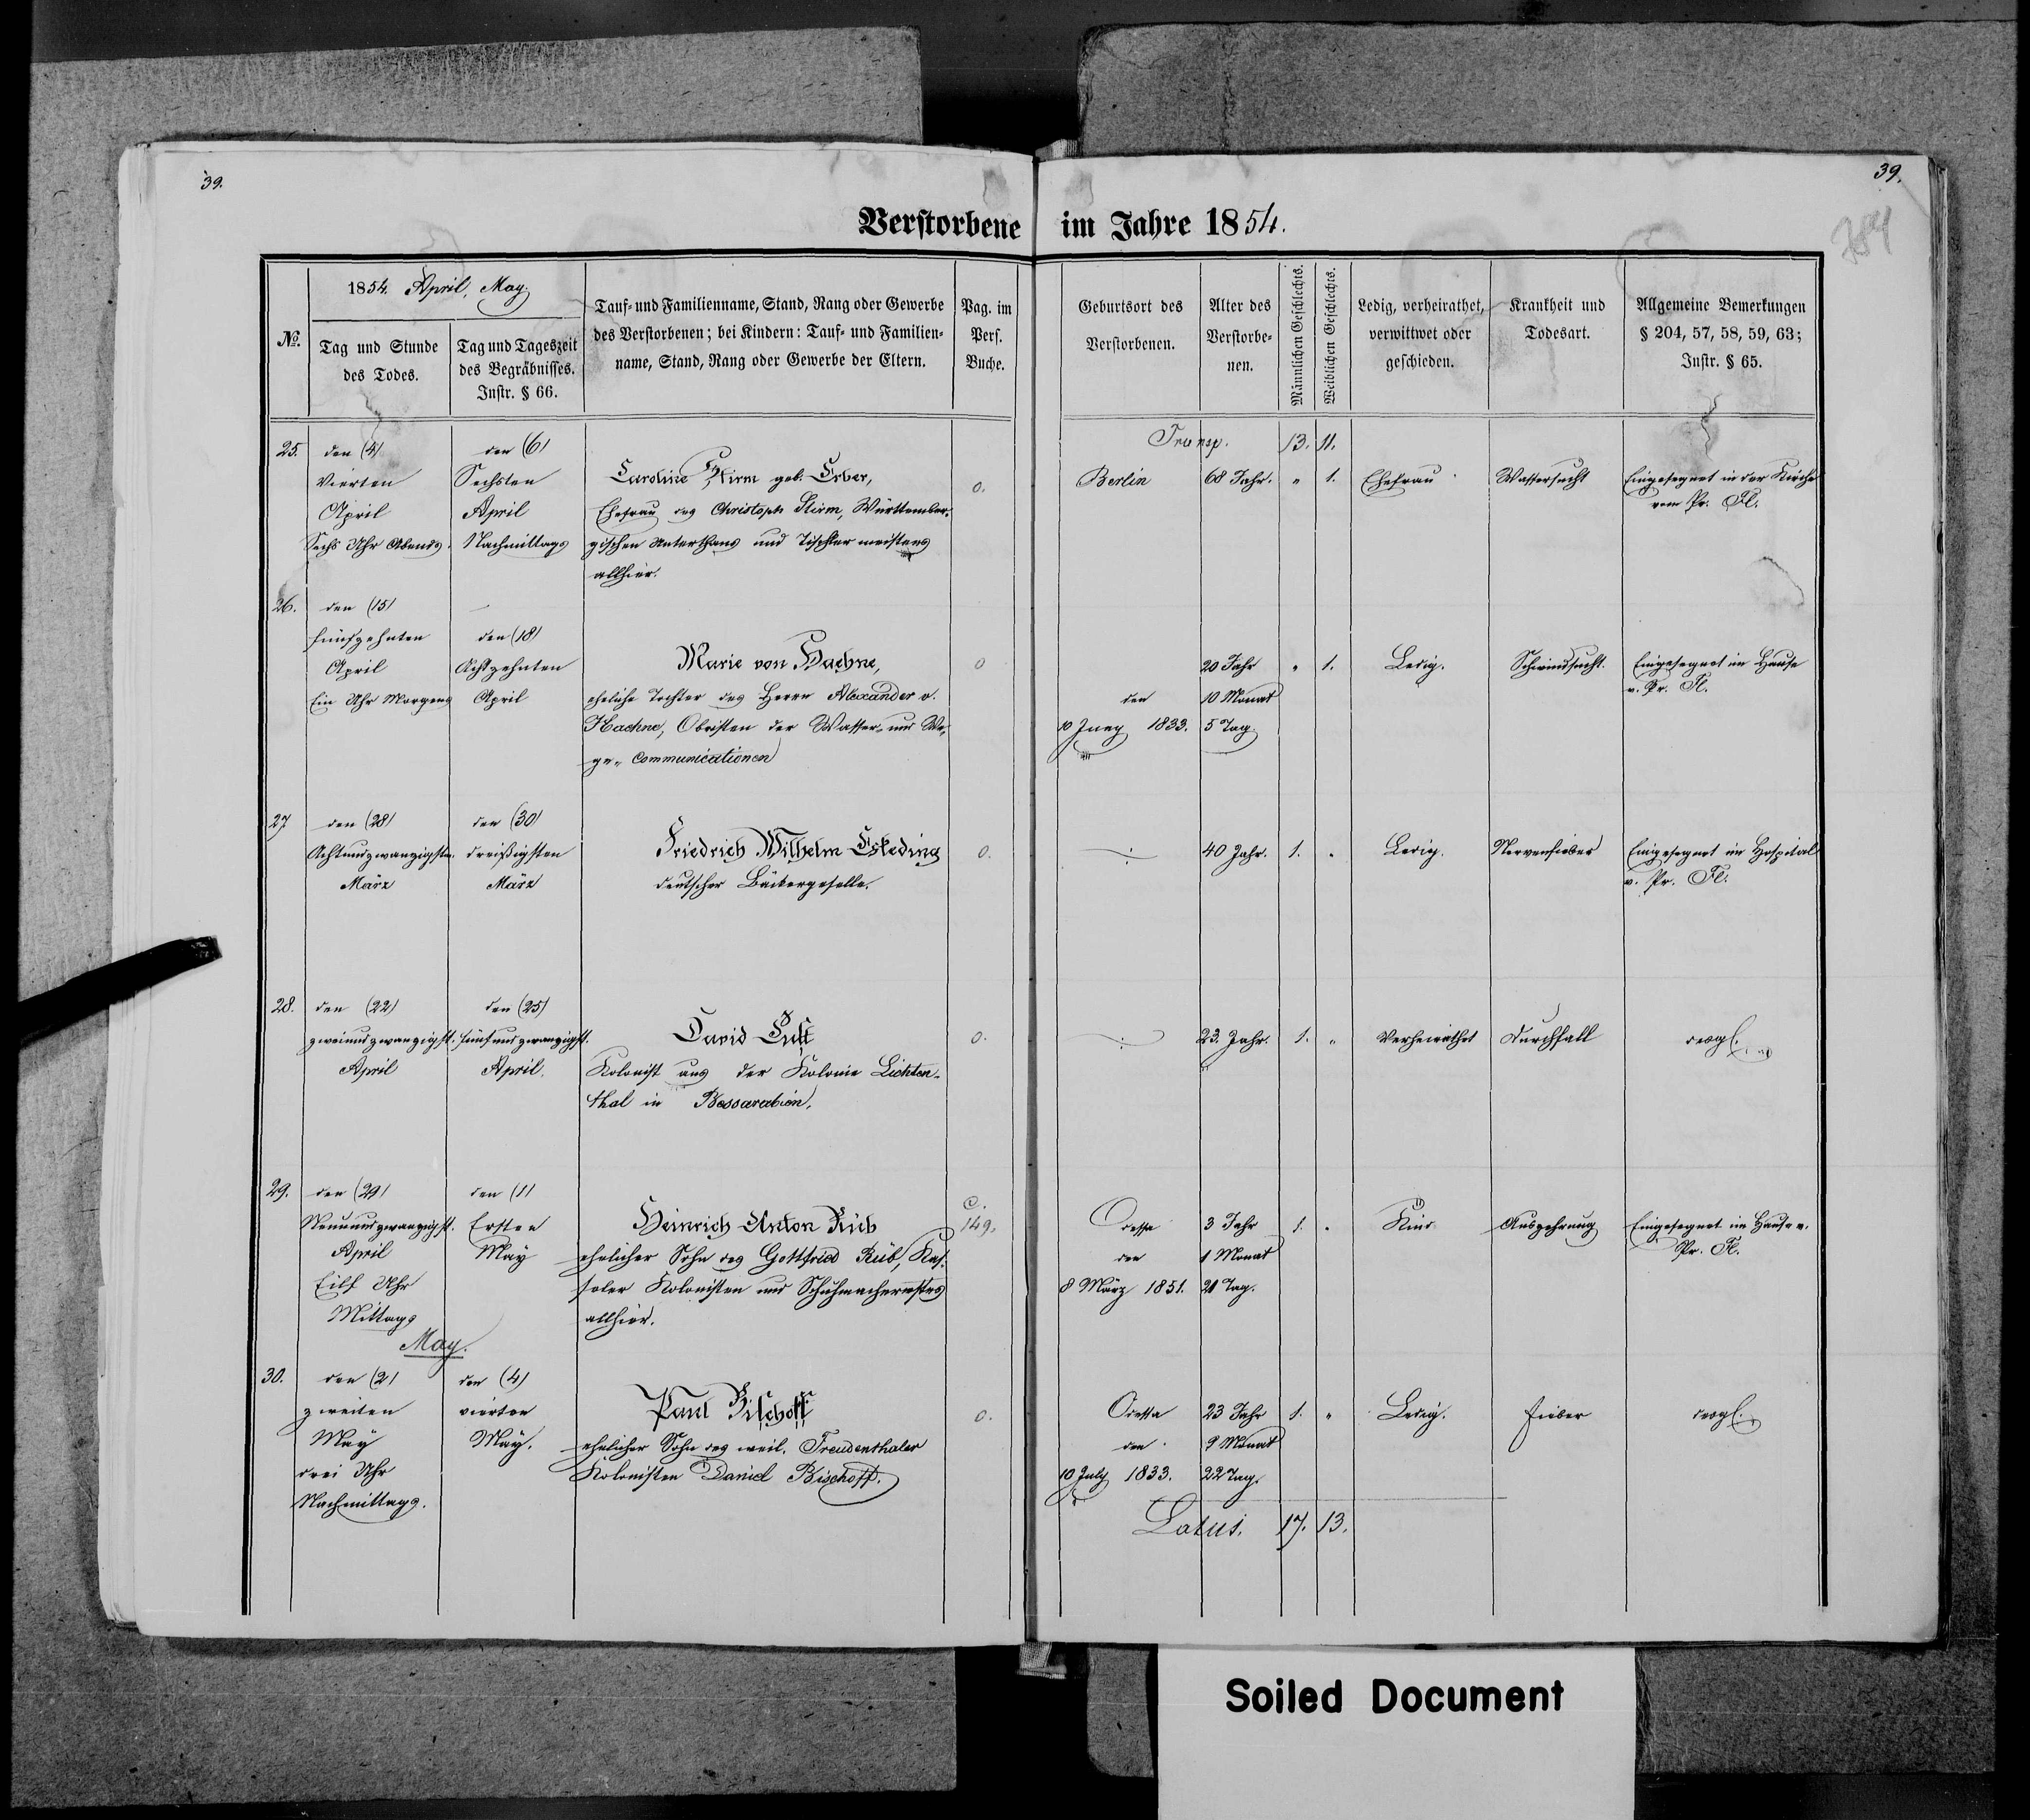 39.
39.
784
Verstorbene im Jahre 1854.
1854. April, May.
№.
Tag und Stunde
des Todes.
Tag und Tageszeit
des Begräbnisses.
Instr. § 66.
Tauf- und Familienname, Stand, Rang oder Gewerbe
des Verstorbenen; bei Kindern: Tauf- und Familien-
name, Stand, Rang oder Gewerbe der Eltern.
Pag. im
Pers.
Buche.
Geburtsort des
Verstorbenen.
Alter des
Verstorbe-
nen.
Männlichen Geschlechts.
Weiblichen Geschlechts.
Ledig, verheirathet,
verwittwet oder
geschieden.
Krankheit und
Todesart.
Allgemeine Bemerkungen
§ 204, 57, 58, 59, 63;
Instr. § 65.
Transp. 13. 11.
25.
den (4)
Vierten
April
Sechs Uhr Abends.
den (6)
Sechsten
April
Nachmittags
Caroline Stirm geb. Erber,
Ehefrau des Christoph Stirm, Württember-
gischen Unterthans und Tischlermeisters
allhier.
0.
Berlin
68 Jahr.
" 1.
Ehefrau
Wassersucht
Eingesegnet in der Kirche
vom Pr. Fl.
26.
den (15)
fünfzehnten
April
Ein Uhr Morgens
den (18)
Achtzehnten
April
Marie von Haehne,
eheliche Tochter des Herrn Alexander v.
Haehne, Obristen der Wasser- und We-
ge-Communicationen
0
den
10 Juny 1833.
20 Jahr
10 Monat
5 Tag
" 1.
Ledig.
Schwindsucht.
Eingesegnet im Hause
v. Pr. Fl.
27
den (28)
Achtundzwanzigsten
März
den (30)
dreißigsten
März
Friedrich Wilhelm Eskeding
deutscher Bäckergeselle.
0.
40 Jahr.
1. "
Ledig.
Nervenfieber
Eingesegnet im Hospital
v. Pr. Fl.
28.
den (22)
zweiundzwanzigst.
April
den (25)
fünfundzwanzigst.
April.
David Lust
Kolonist aus der Kolonie Lichten-
thal in Bessarabien.
0.
23. Jahr.
1. "
Verheirathet
Durchfall
desgl.
29.
den (29)
Neunundzwanzigst.
April
Eilf Uhr
Mittags
den (1)
Ersten
May
Heinrich Anton Rüb
ehelicher Sohn des Gottfried Rüb, Kas-
seler Kolonisten und Schuhmachermstrs
allhier.
C.
149.
Odessa
den
8 März 1851.
3 Jahr
1 Monat
21 Tag.
1. "
Kind
Auszehrung
Eingesegnet im Hause v.
Pr. Fl.
May.
30.
den (2)
zweiten
May
drei Uhr
Nachmittags.
den (4)
vierten
May.
Paul Bischoff
ehelicher Sohn des weil. Freudenthaler
Kolonisten Daniel Bischoff.
0.
Odessa
den
10 July 1833.
23 Jahr
9 Monat
22 Tag.
1. "
Ledig.
Fieber
desgl.
Latus. 17. 13.
Soiled Document